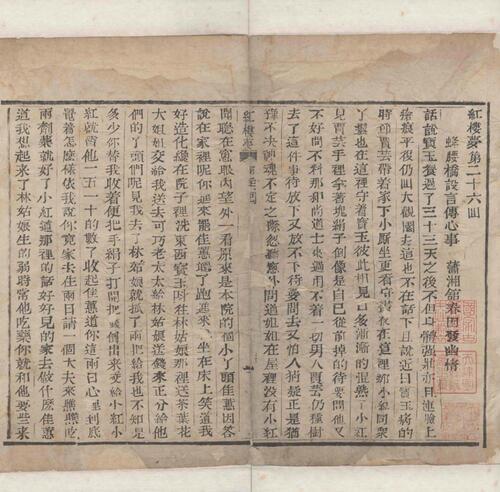 紅樓夢第二十六回
蜂腰橋設言傳心事　瀟湘館春困發幽情
話說寶玉養過了三十三天之後不但身體強壯亦且連臉上
瘡痕平復仍回大觀園去這也不在話下且說近日寶玉病的
時節賈芸帶着家下小厮坐更看守晝夜在這裡那小紅同衆
丫鬟也在這裡守着寶玉彼此相見日多漸漸的混熟了小紅
見賈芸手裡拿著塊絹子倒像是自己從前掉的待要問他又
不好問不料那和尚道士來過用不着一切男人賈芸仍種樹
去了這件事待放下又放不下待要問去又怕人猜疑正是猶
豫不決神魂不定之際忽聽窻外問道姐姐在屋裡沒有小紅
聞聽在窻眼內望外一看原來是本院的個小丫頭佳蕙因答
說在家裡呢你進來罷佳蕙聽了跑進來就坐在床上笑道我
好造化纔在院子裡洗東西寶玉叫往林姑娘那裡送茶葉花
大姐姐交給我送去可巧老太太給林姑娘送錢來正分給他
們的丫頭們呢見我去了林姑娘就抓了兩把給我也不知是
多少你替我收着便把手絹子打開把錢倒出來交給小紅小
紅就替他一五一十的數了收起佳蕙道你這兩日心裡到底
覺着怎麼樣依我說你竟家去住兩日請一個大夫來瞧瞧吃
兩劑藥就好了小紅道那裡的話好好兒的家去做什麼佳蕙
道我想起來了林姑娘生的弱時常他吃藥你就和他要些來